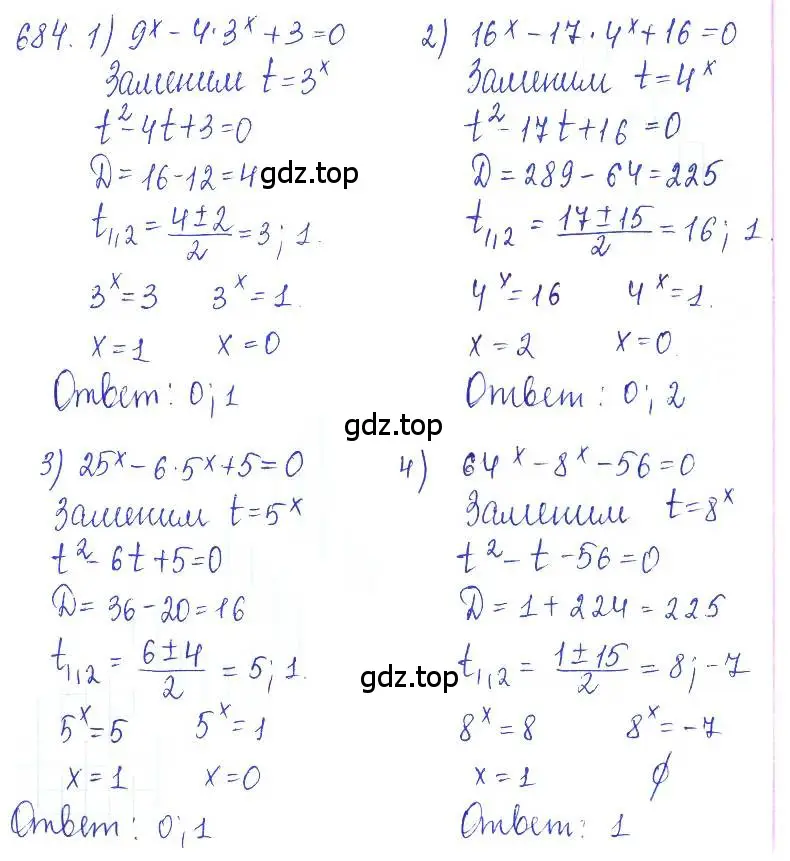 684. 1) 9ˣ - 4·3ˣ + 3 = 0
Заменим t = 3ˣ
t² - 4t + 3 = 0
Д = 16 - 12 = 4
t₁,₂ = (4 ± 2)/2 = 3; 1.
3ˣ = 3 3ˣ = 1.
x = 1 x = 0
Ответ: 0; 1
2) 16ˣ - 17·4ˣ + 16 = 0
Заменим t = 4ˣ
t² - 17t + 16 = 0
Д = 289 - 64 = 225
t₁,₂ = (17 ± 15)/2 = 16; 1.
4ˣ = 16 4ˣ = 1.
x = 2 x = 0.
Ответ: 0; 2
3) 25ˣ - 6·5ˣ + 5 = 0
Заменим t = 5ˣ
t² - 6t + 5 = 0
Д = 36 - 20 = 16
t₁,₂ = (6 ± 4)/2 = 5; 1.
5ˣ = 5 5ˣ = 1
x = 1 x = 0
Ответ: 0; 1
4) 64ˣ - 8ˣ - 56 = 0
Заменим t = 8ˣ
t² - t - 56 = 0
Д = 1 + 224 = 225
t₁,₂ = (1 ± 15)/2 = 8; -7
8ˣ = 8 8ˣ = -7
x = 1 ∅
Ответ: 1
gdz.top
gdz.top
gdz.top